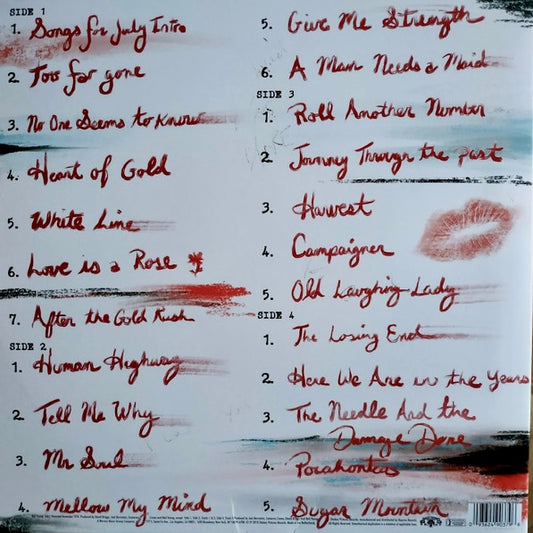 SIDE 1
1. Songs for July Intro
2 Too far gone
3. No One Seems to Know
4. Heart of Gold
5. White Line
6. Love is a Rose
7. After the Gold Rush
SIDE 2
1. Human Highway
2 Tell Me Why
3. Mr Soul
4. Mellow My Mind
5. Give Me Strength
6. A Man Needs a Maid
SIDE 3
1. Roll Another Number
2. Journey Through the past
3. Harvest
4. Campaigner
5. Old Laughing Lady
SIDE 4
1. The Losing End
2. Here We Are in the Years
3. The Needle And the
Damage Done
4. Pocahontas
5. Sugar Mountain